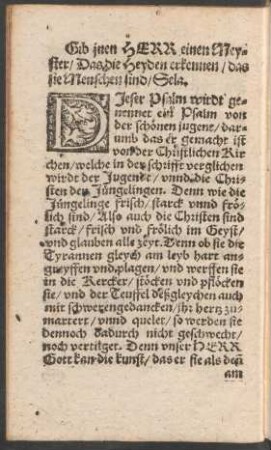 Gib jnen HERR einen Mey-
ster/ Das die Heyden erkennen/ das
sie Menschen sind/ Sela.
DJeser Psalm wirdt ge-
nennet ein Psalm von
der schönen jugent/ dar-
umb das er gemacht ist
von der Christlichen Kir
chen/ welche in der schrifft verglichen
wirdt der Jugent/ vnnd die Chri-
sten den Jünglingen. Denn wie die
Jünglinge frisch/ starck vnnd frö-
lich sind/ Also auch die Christen sind
starck/ frisch vnd frölich im Geyst/
vnd glauben alle zeyt. Denn ob sie die
Tyrannen gleych am leyb hart an-
greyffen vnd plagen/ vnd werffen sie
in die Kercker/ stöcken vnd pflöcken
sie/ vnd der Teuffel deßgleychen auch
mit schwerengedancken/ jhr hertz zu-
martert/ vnnd quelet/ so werden sie
dennoch dadurch nicht geschwecht/
noch vertilget. Denn vnser HERR
Gott kan die kunst/ das er sie als deñ
am